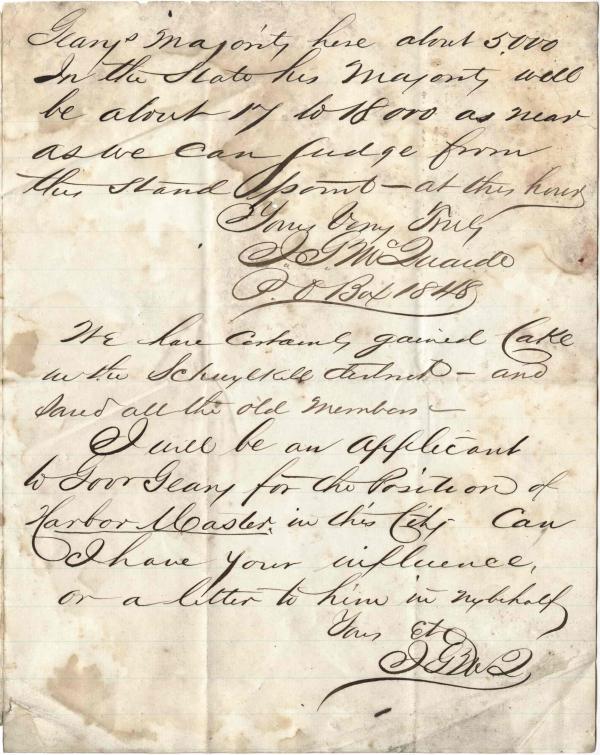 Gearys Majority here about 5.000
In the State his Majority will
be about 17 to 18 000 as near
as we can judge from
this stand point – at this hour
Yours Very Truly
J. G. McQuaide
P. O Box 1848
We have certainly gained Cake
in the Schuylkill district – and
saved all the old members –
I will be an applicant
to Govr Geary for the Position of
Harbor Master, in this City Can
I have your influence,
or a letter to him in my behalf
Yours Etc
J G McQ